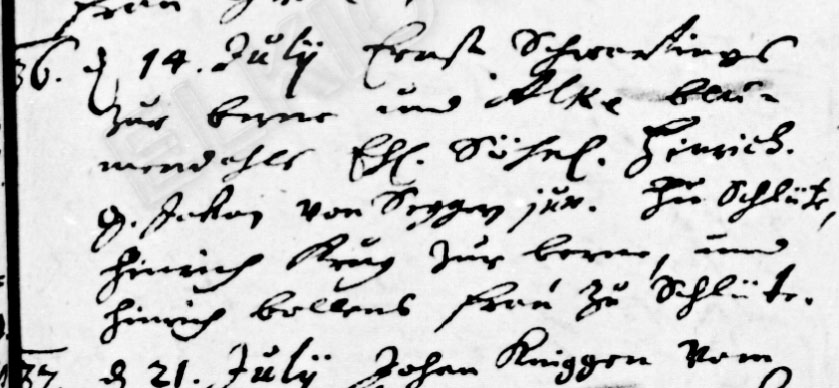 frau
36. d. 14. Julÿ Ernst Schwartings
zur berne und Alke blu-
mendahls Ehl. Söhnl. Hinrich.
g. Johan von Seggen jun. zu Schlüte,
Hinrich Krüg zur berne, und
Hinrich bollens frau zu Schlüte.
37 d. 21. Julÿ Johan Kniggen Vom